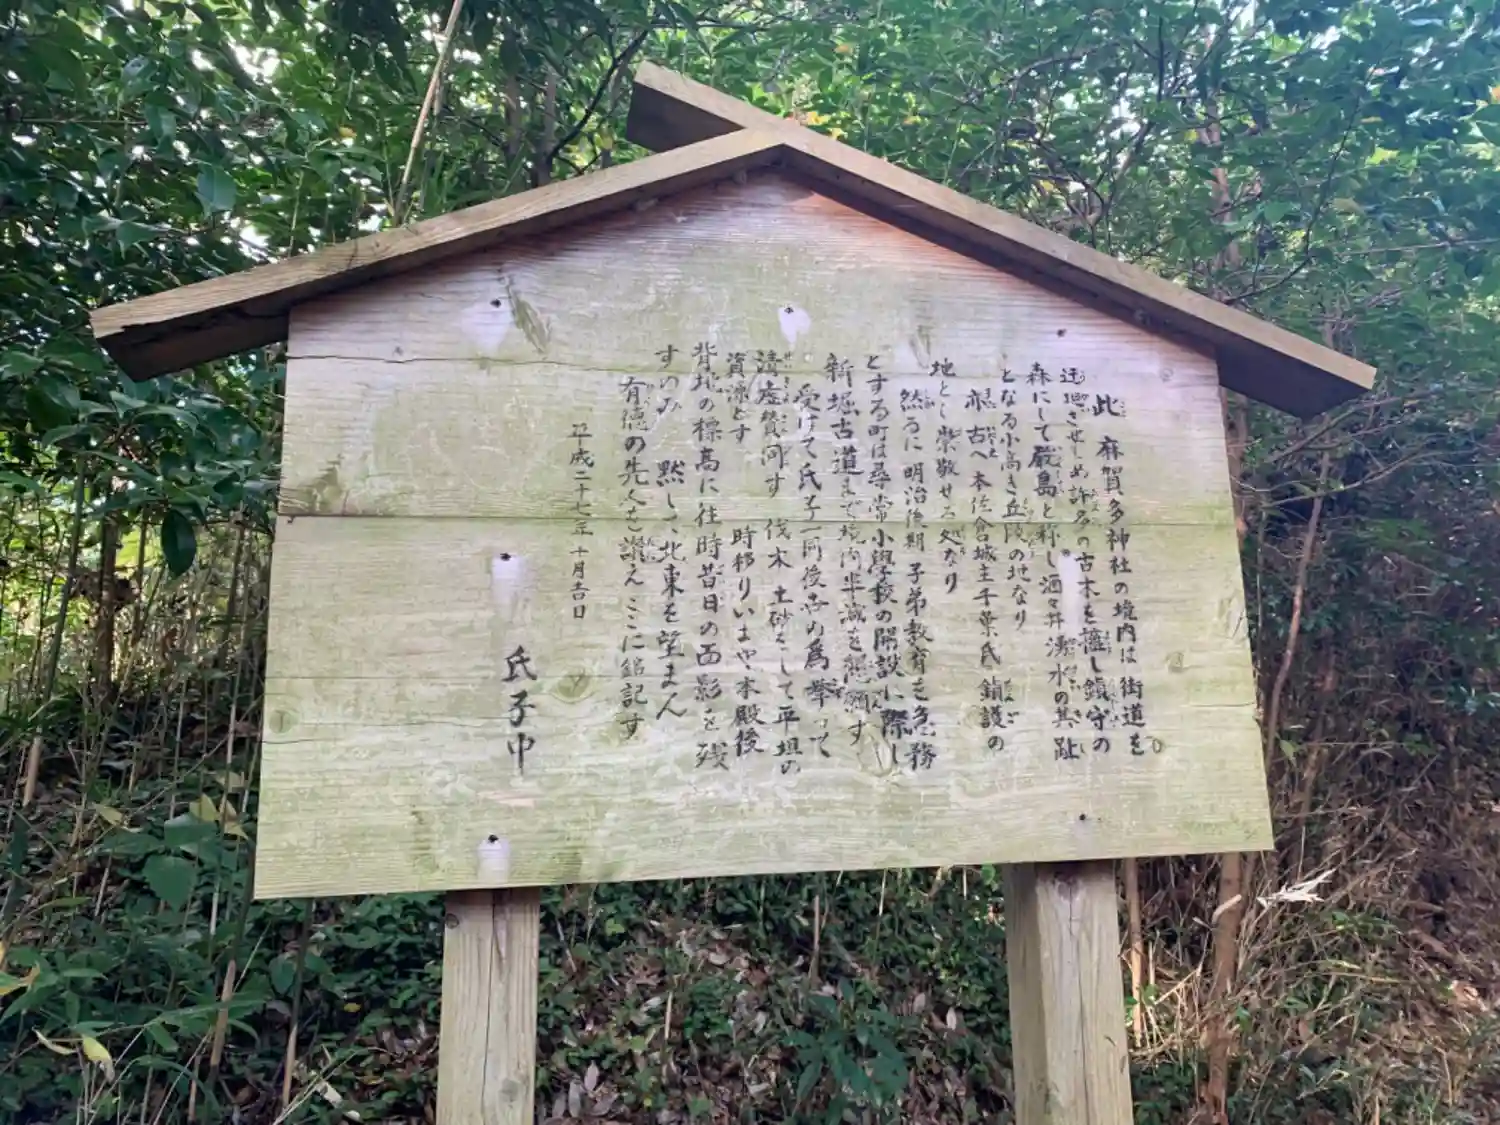 此 麻賀多神社の境内は街道を
迂廻させしめ許多の古木を擁し鎮守の
森にして厳島と称し酒々井湧水の基趾
となる小高き丘陵の地なり
亦古へ本佐倉城主千葉氏鎮護の
地とし崇敬せる処なり
然るに明治後期 子弟教育を急務
とする町は尋常小學校の開設に際し
新堀古道まで境内半減を懇願す
受けて氏子一同後世の為挙って
清虚賛同す 伐木 土砂をして平坦の
資源とす 時移りいまや本殿後
背地の標高に往時昔日の面影を残
すのみ 黙しつ北東を望まん
有徳の先人を讃えここに銘記す
平成二十七年十月吉日
氏子中